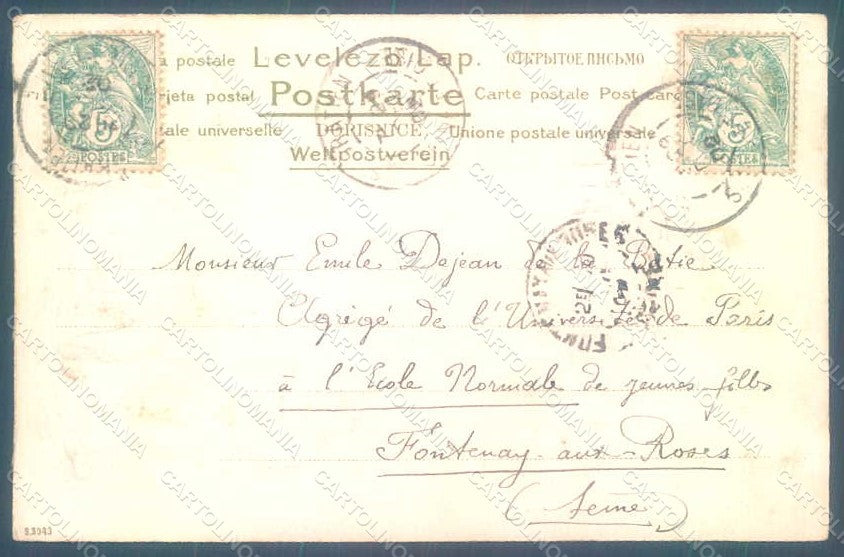 postale Levelező-Lap. ОТКРЫТОЕ ПИСЬМО
postal Postkarte Carte postale Post card
universelle DOPISNICE, Unione postale universale
Weltpostverein
5 POSTES
POSTES
Monsieur Emile Dejean de la Batie
Agrégé de l'Université de Paris
à l'Ecole Normale de jeunes filles
Fontenay-aux-Roses
(Seine)
S.3043
CARTOLINOMANIA